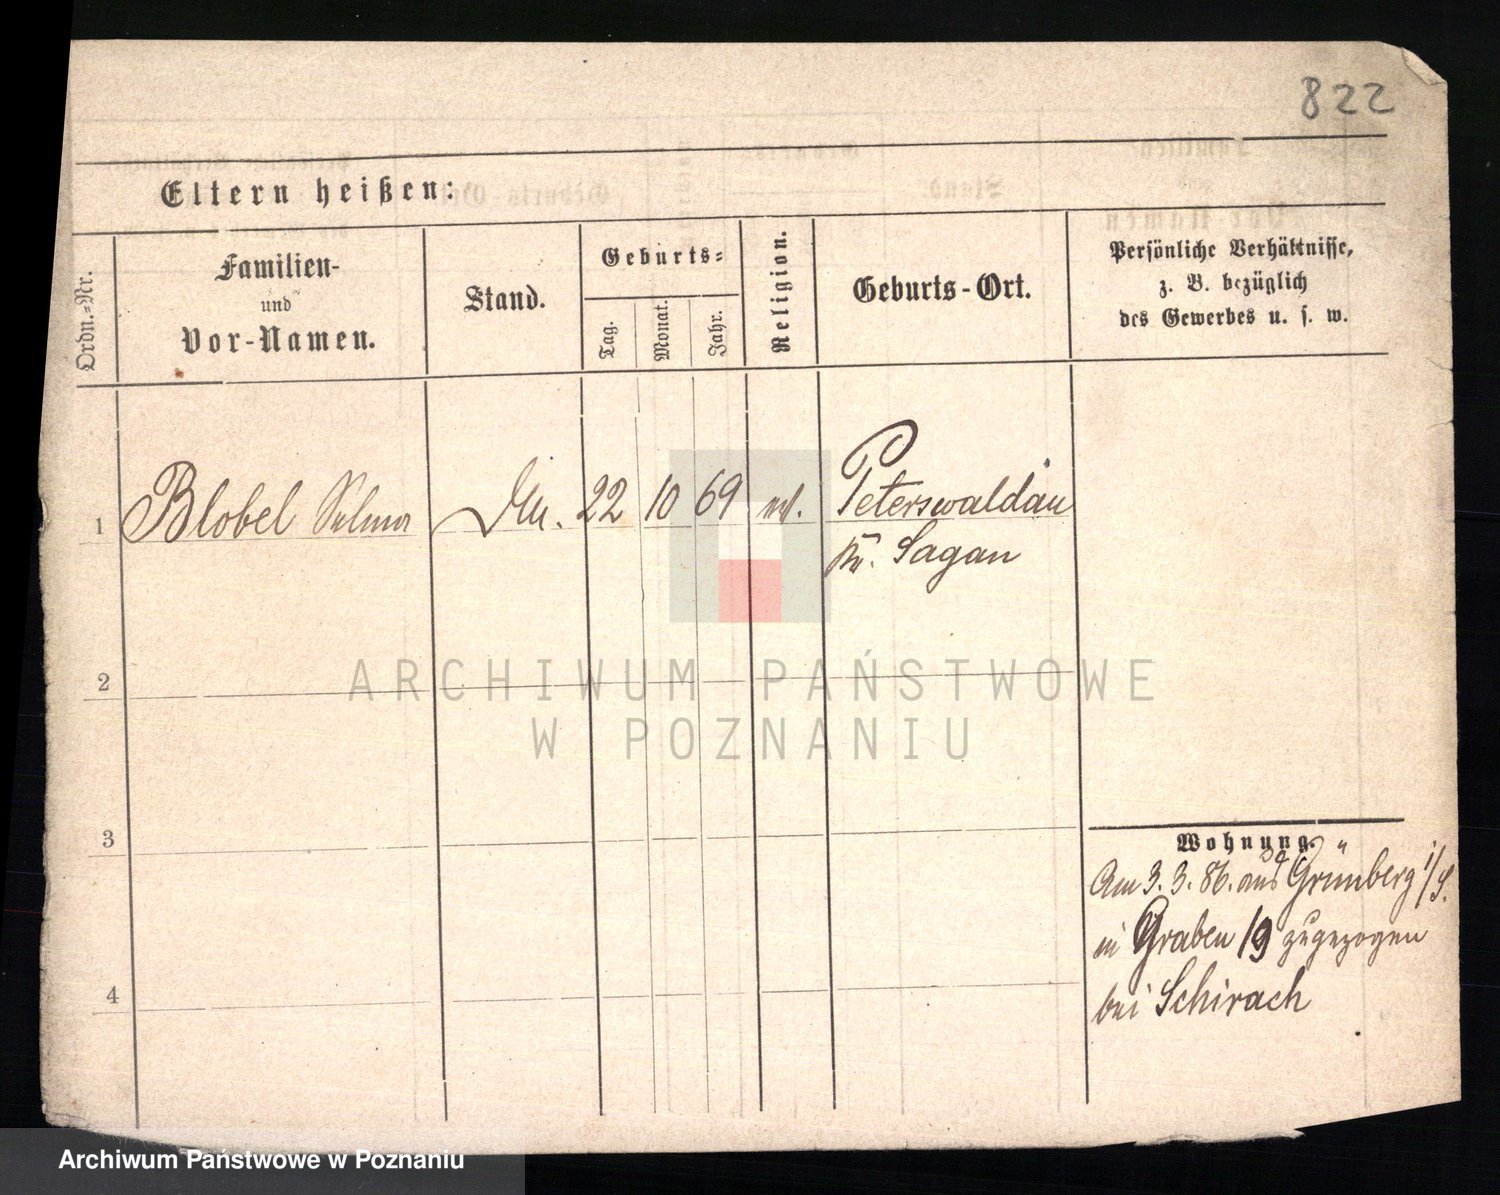 822
Eltern heißen:
Ordn.-Nr.
Familien-
und
Vor-Namen.
Stand.
Geburts-
Tag.
Monat.
Jahr.
Religion.
Geburts-Ort.
Persönliche Verhältnisse,
z. B. bezüglich
des Gewerbes u. s. w.
1 Blobel Selma 22 10 69 Peterswaldau
Kr. Sagan
2
3
4
Wohnung.
Am 3. 3. 86. aus Grünberg i/S.
in Graben 19 zugezogen
bei Schirach
ARCHIWUM PAŃSTWOWE
W POZNANIU
Archiwum Państwowe w Poznaniu